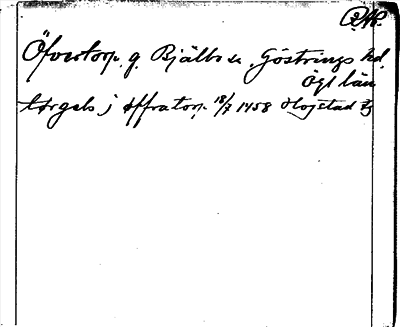 Öfvertorp. g. Bjälbo sn. Göstrings hd.
Ögl län
torgels j öffratorp. 18/7 1458 Hogstad